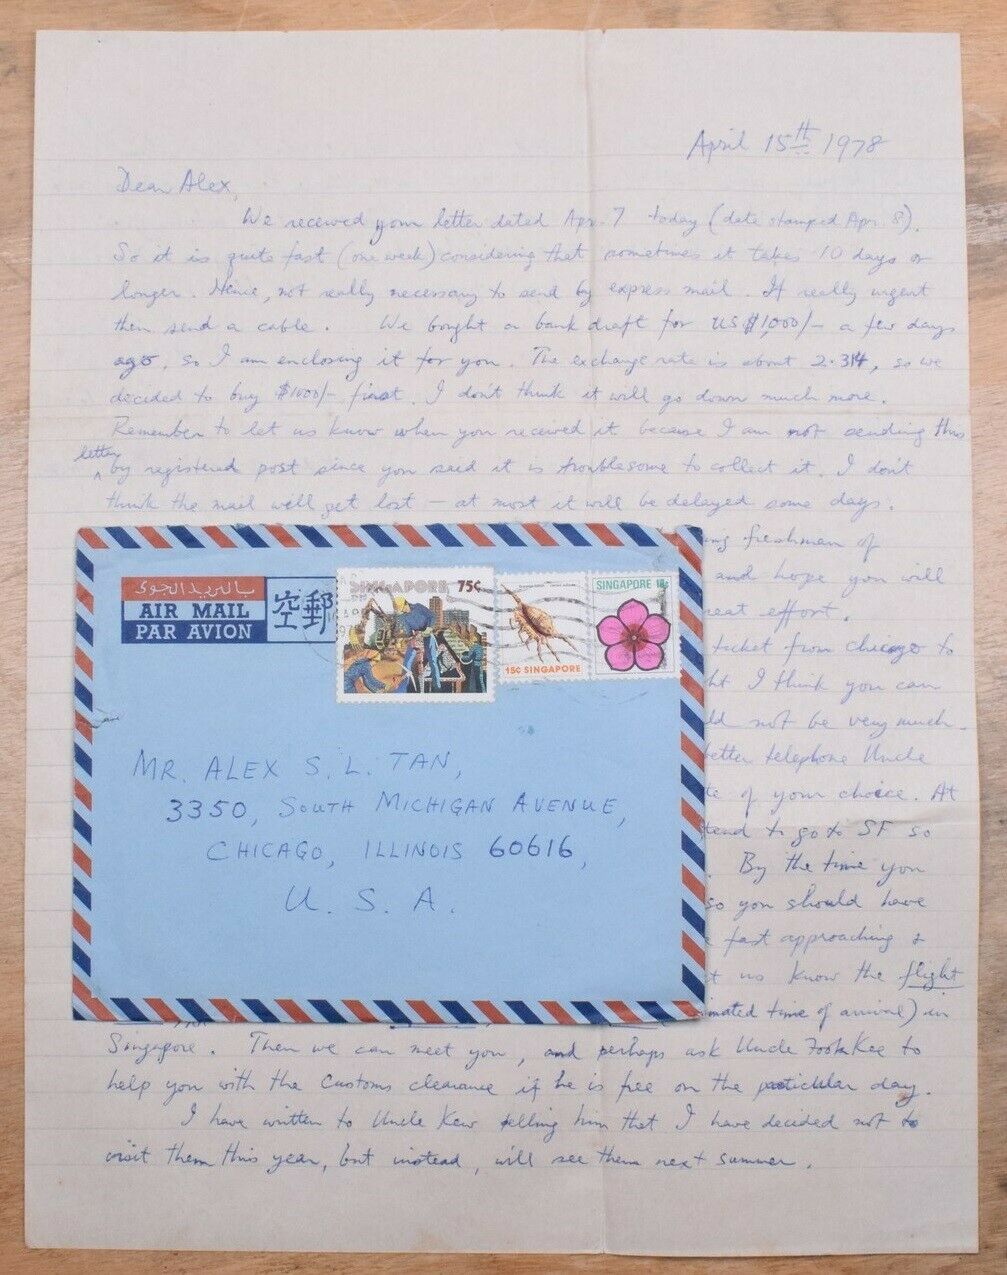 April 15th 1978
Dear Alex,
We received your letter dated Apr. 7 today (date stamped Apr. 8).
So it is quite fast (one week) considering that sometimes it takes 10 days or
longer. Hence, not really necessary to send by express mail. If really urgent
then send a cable. We bought a bank draft for US$1,000/- a few days
ago, so I am enclosing it for you. The exchange rate is about 2.314, so we
decided to buy $1000/- first. I don't think it will go down much more.
Remember to let us know when you received it because I am not sending this
letter
by registered post since you said it is troublesome to collect it. I don't
think the mail will get lost – at most it will be delayed some days.
freshman of
and hope you will
effort.
ticket from Chicago to
I think you can
not be very much.
better telephone Uncle
of your choice. At
to go to SF so
By the time you
so you should have
fast approaching &
us know the flight
time of arrival) in
Singapore. Then we can meet you, and perhaps ask Uncle Fook Kee to
help you with the Customs clearance if he is free on the particular day.
I have written to Uncle Kew telling him that I have decided not to
visit them this year, but instead, will see them next summer.
بالبريد الجوي
AIR MAIL
PAR AVION
空郵
SINGAPORE 75¢
15¢ SINGAPORE
SINGAPORE
MR. ALEX S. L. TAN,
3350, SOUTH MICHIGAN AVENUE,
CHICAGO, ILLINOIS 60616,
U. S. A.